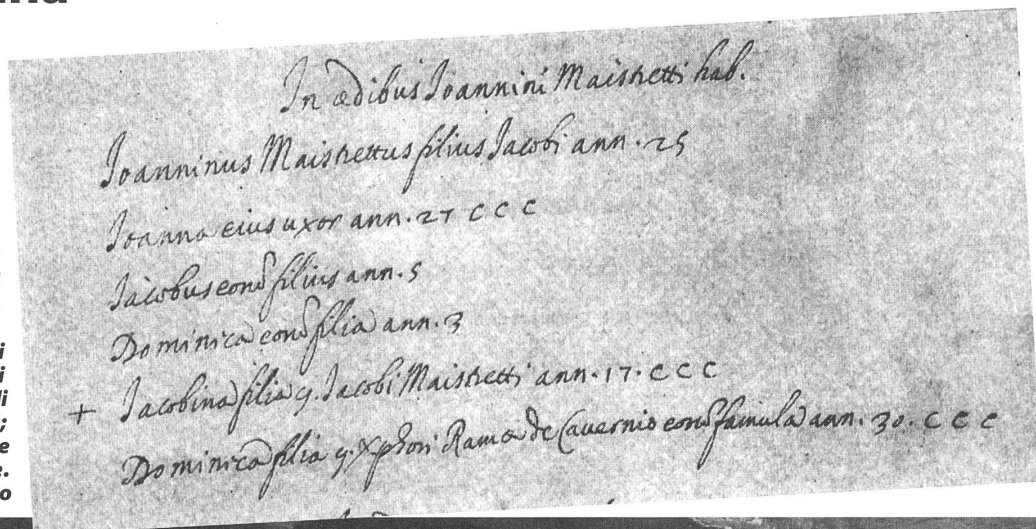 In ædibus Joannini Maistretti hab.
Joanninus Maistrettus filius Jacobi ann. 25
Joanna eius uxor ann. 27 c c c
Jacobus eorū filius ann. 5
Dominica eorū filia ann. 3
+ Jacobina filia q. Jacobi Maistretti ann. 17. c c c
Dominica filia q. Xphori de Cavernio eorū famula ann. 30. c c c
i
i
li
;
e
e.
o